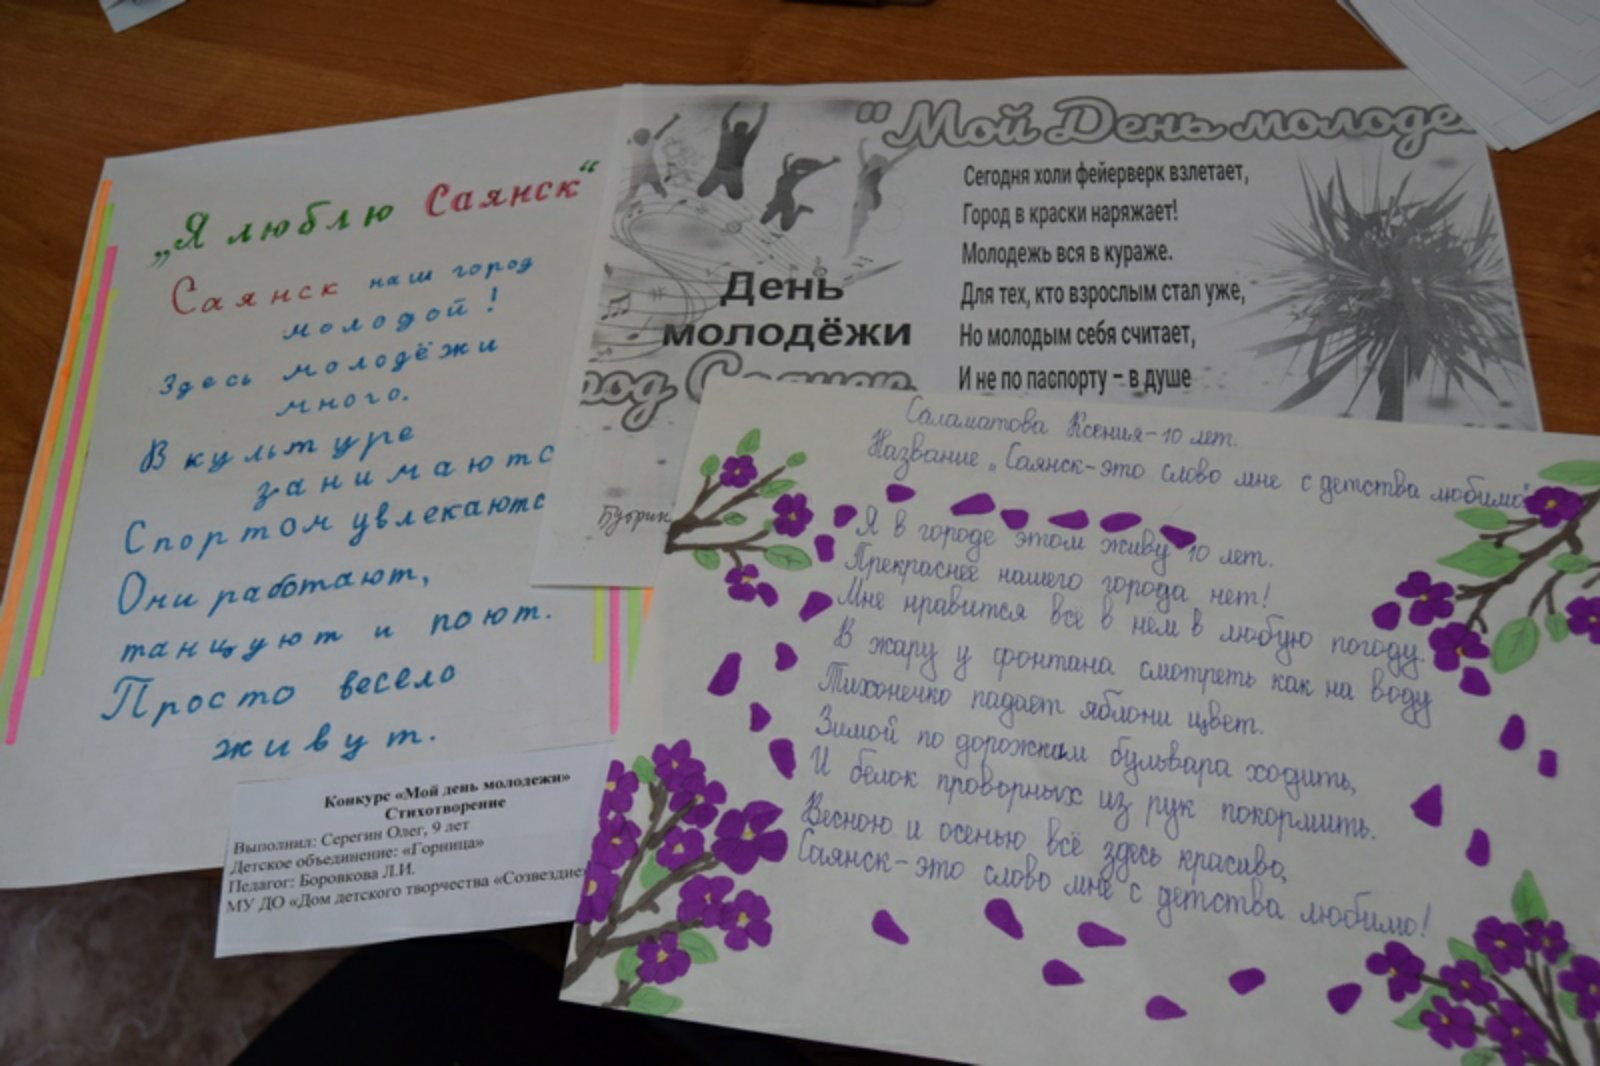 „Я люблю Саянск“
Саянск наш город
молодой!
Здесь молодёжи
много.
В культуре
занимаютс
Спортом увлекаютс
Они работают,
танцуют и поют.
Просто весело
живут.
Конкурс «Мой день молодежи»
Стихотворение
Выполнил: Серегин Олег, 9 лет
Детское объединение: «Горница»
Педагог: Боровкова Л.И.
МУ ДО «Дом детского творчества «Созвездие»
"Мой День молоде
День
молодёжи
Сегодня холи фейерверк взлетает,
Город в краски наряжает!
Молодежь вся в кураже.
Для тех, кто взрослым стал уже,
Но молодым себя считает,
И не по паспорту – в душе
Саламатова Ксения-10 лет.
Название „Саянск-это слово мне с детства любимо"
Я в городе этом живу 10 лет.
Прекраснее нашего города нет!
Мне нравится всё в нем в любую погоду.
В жару у фонтана смотреть как на воду
Тихонечко падает яблони цвет.
Зимой по дорожкам бульвара ходить,
И белок проворных из рук покормить.
Весною и осенью всё здесь красиво,
Саянск-это слово мне с детства любимо!